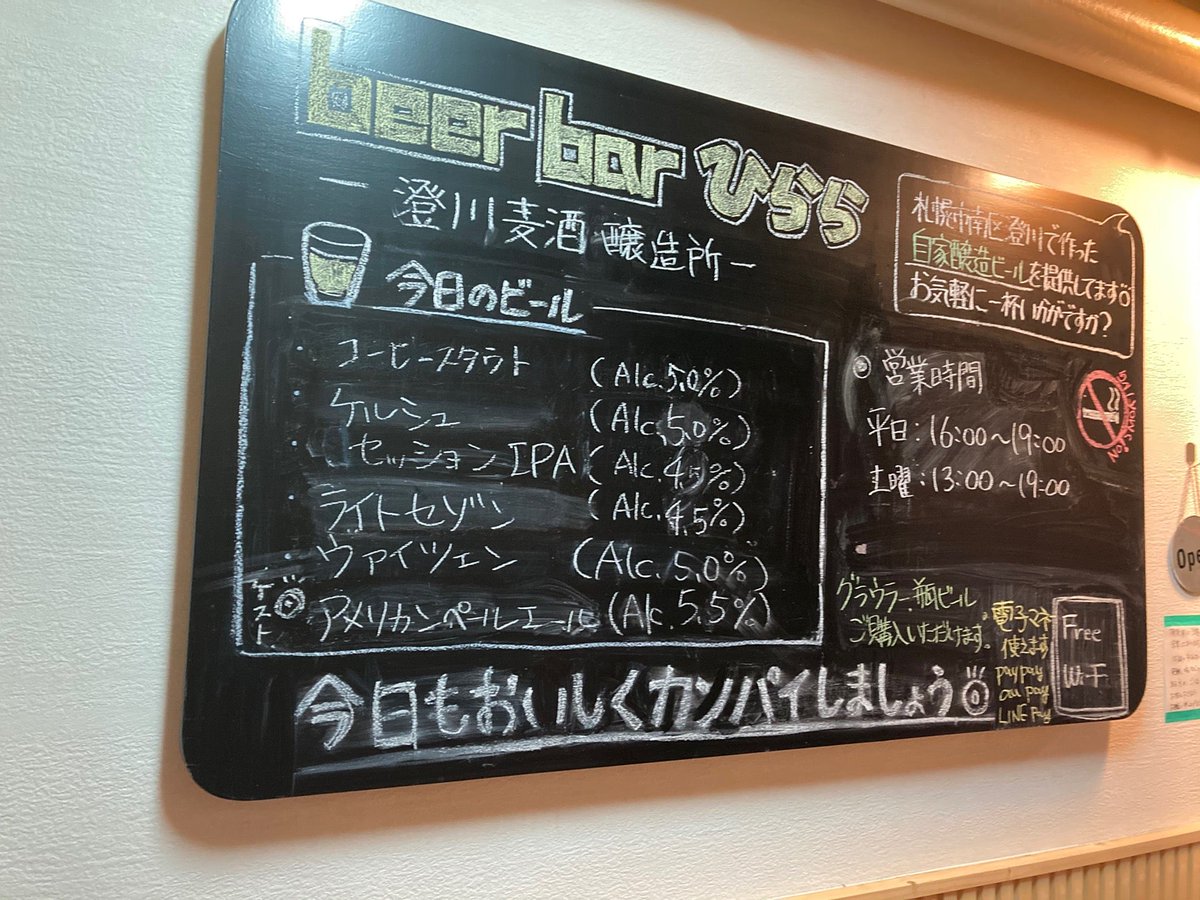 beer bar ひらら
― 澄川麦酒 醸造所 ―
札幌市南区澄川で作った
自家醸造ビールを提供してます
お気軽に一杯いかがですか？
今日のビール
・コーヒースタウト (Alc.5.0%)
・ケルシュ (Alc.5.0%)
・セッションIPA (Alc.4.5%)
・ライトセゾン (Alc.4.5%)
・ヴァイツェン (Alc.5.0%)
ゲスト アメリカンペールエール (Alc.5.5%)
営業時間
平日:16:00～19:00
土曜:13:00～19:00
グラウラー、瓶ビール
ご購入いただけます。
電子マネー
使えます
paypay
au pay
LINE Pay
Free
Wi-Fi
今日もおいしくカンパイしましょう
Ope